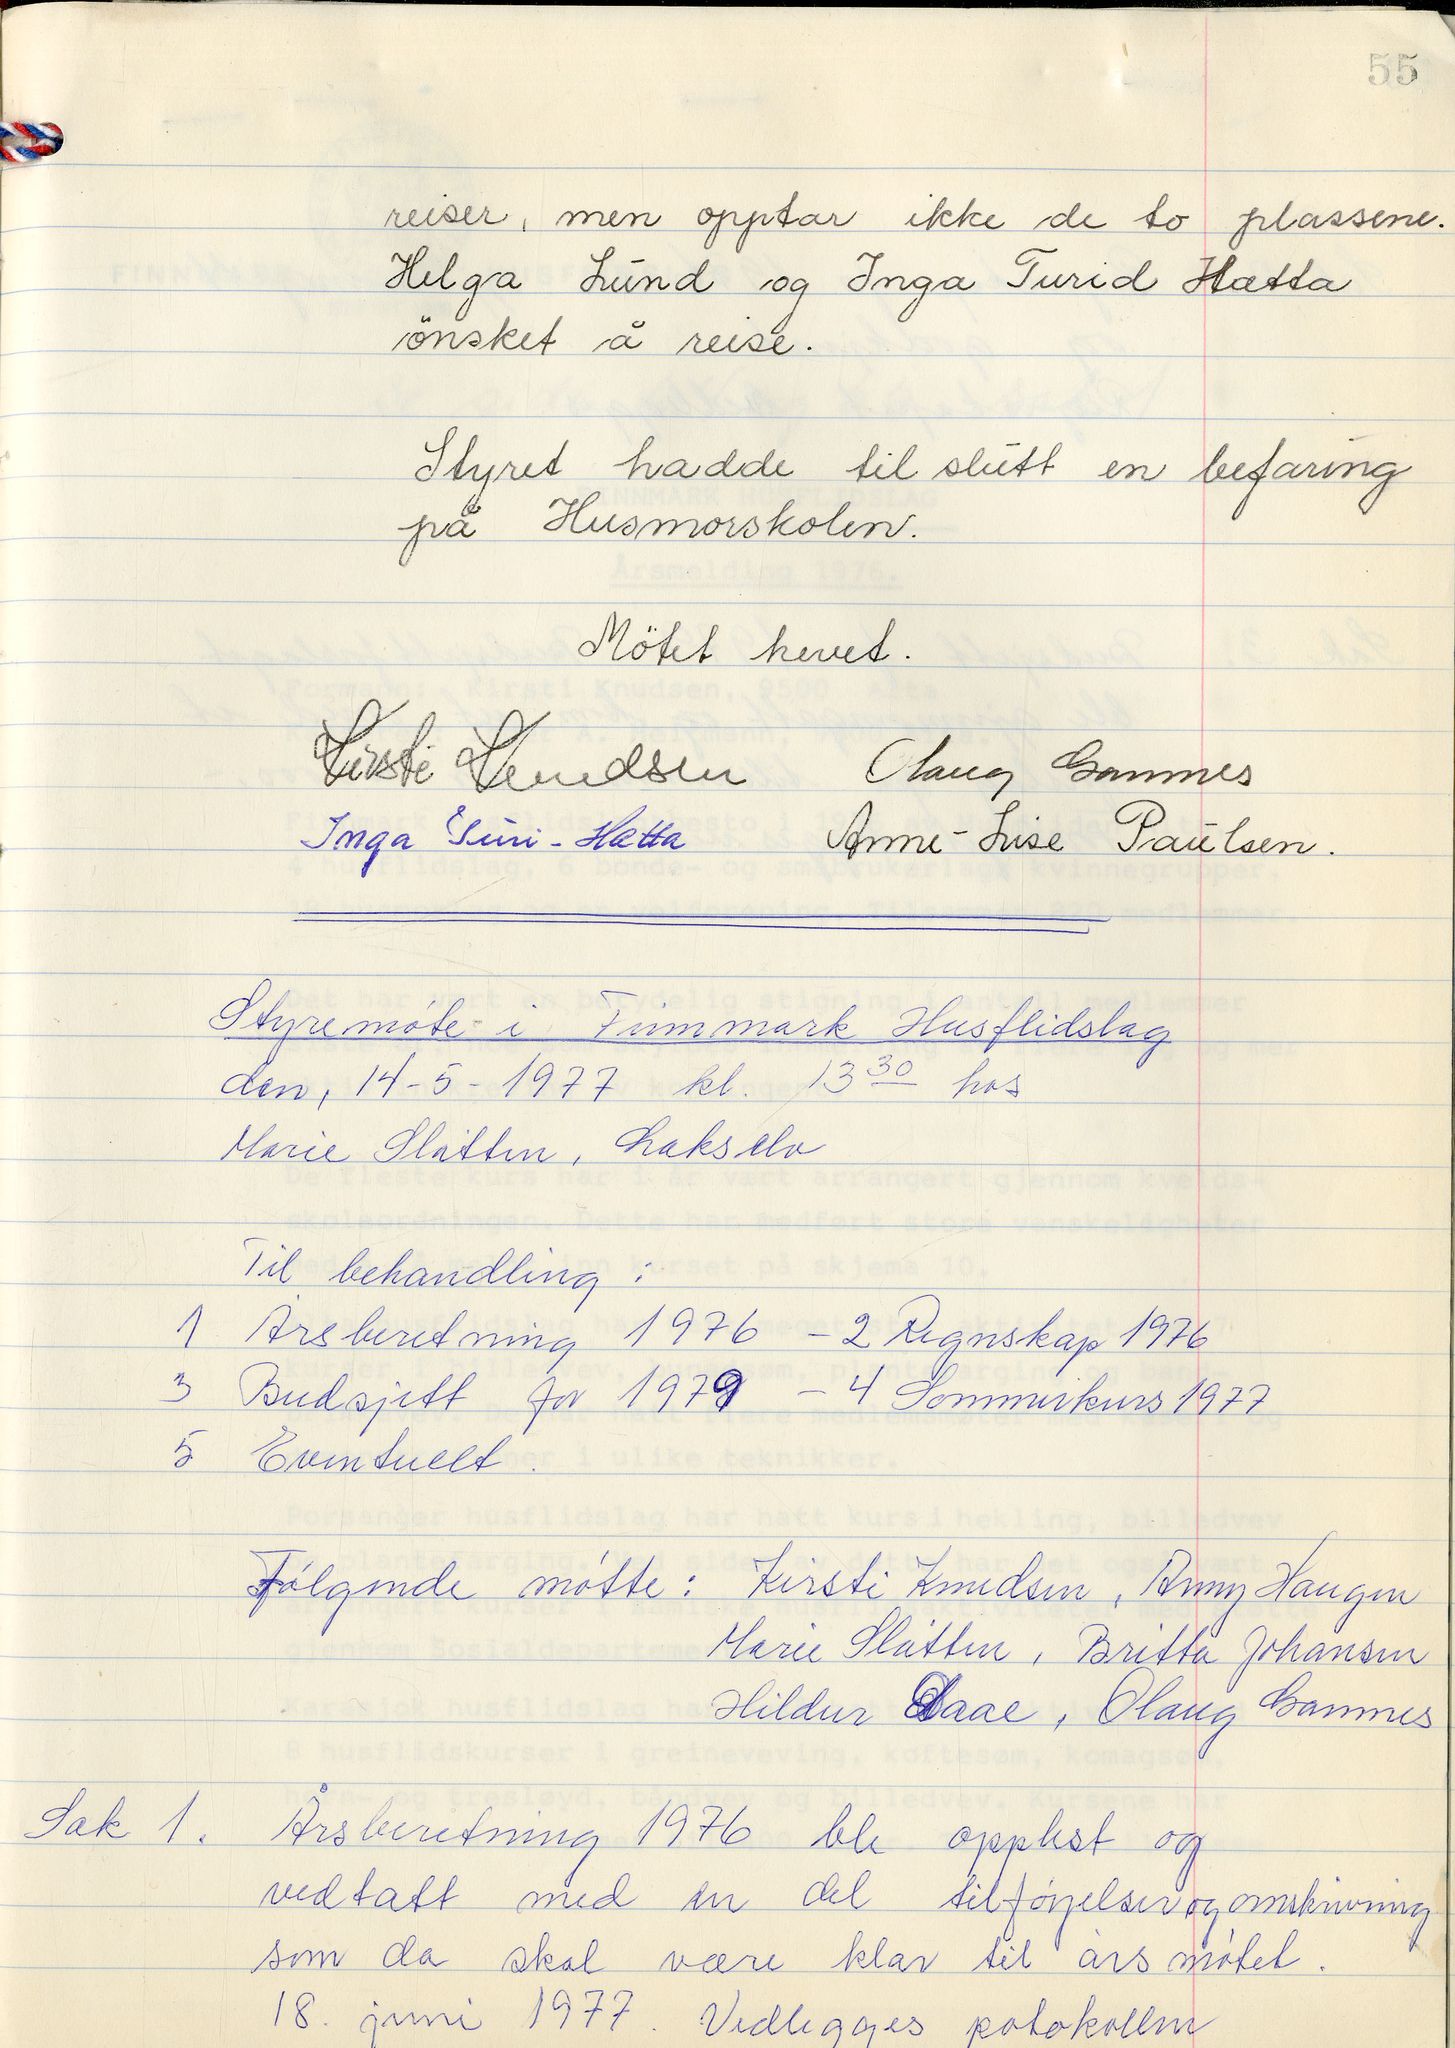 55
reiser, men opptar ikke de to plassene.
Helga Lund og Inga Turid Hætta
önsket å reise.
Styret hadde til slutt en befaring
på Husmorskolen.
Mötet hevet.
Kirsti Knudsen Olaug Gamnes
Inga Turi-Hætta Anne-Lise Paulsen.
Styremöte i Finnmark Husflidslag
den, 14-5-1977 kl. 13 30 hos
Marie Slåtten, Lakselv
Til behandling:
1 Årsberetning 1976 - 2 Regnskap 1976
3 Budsjett for 1979 - 4 Sommerkurs 1977
5 Eventuelt.
Følgende møtte: Kirsti Knudsen, Anny Haugen
Marie Slåtten, Britta Johansen
Hildur Daae, Olaug Gamnes
Sak 1. Årsberetning 1976 ble opplest og
vedtatt med en del tilføyelser og omskrivning
som da skal være klar til årsmøtet.
18. juni 1977. Vedlegges potokollen